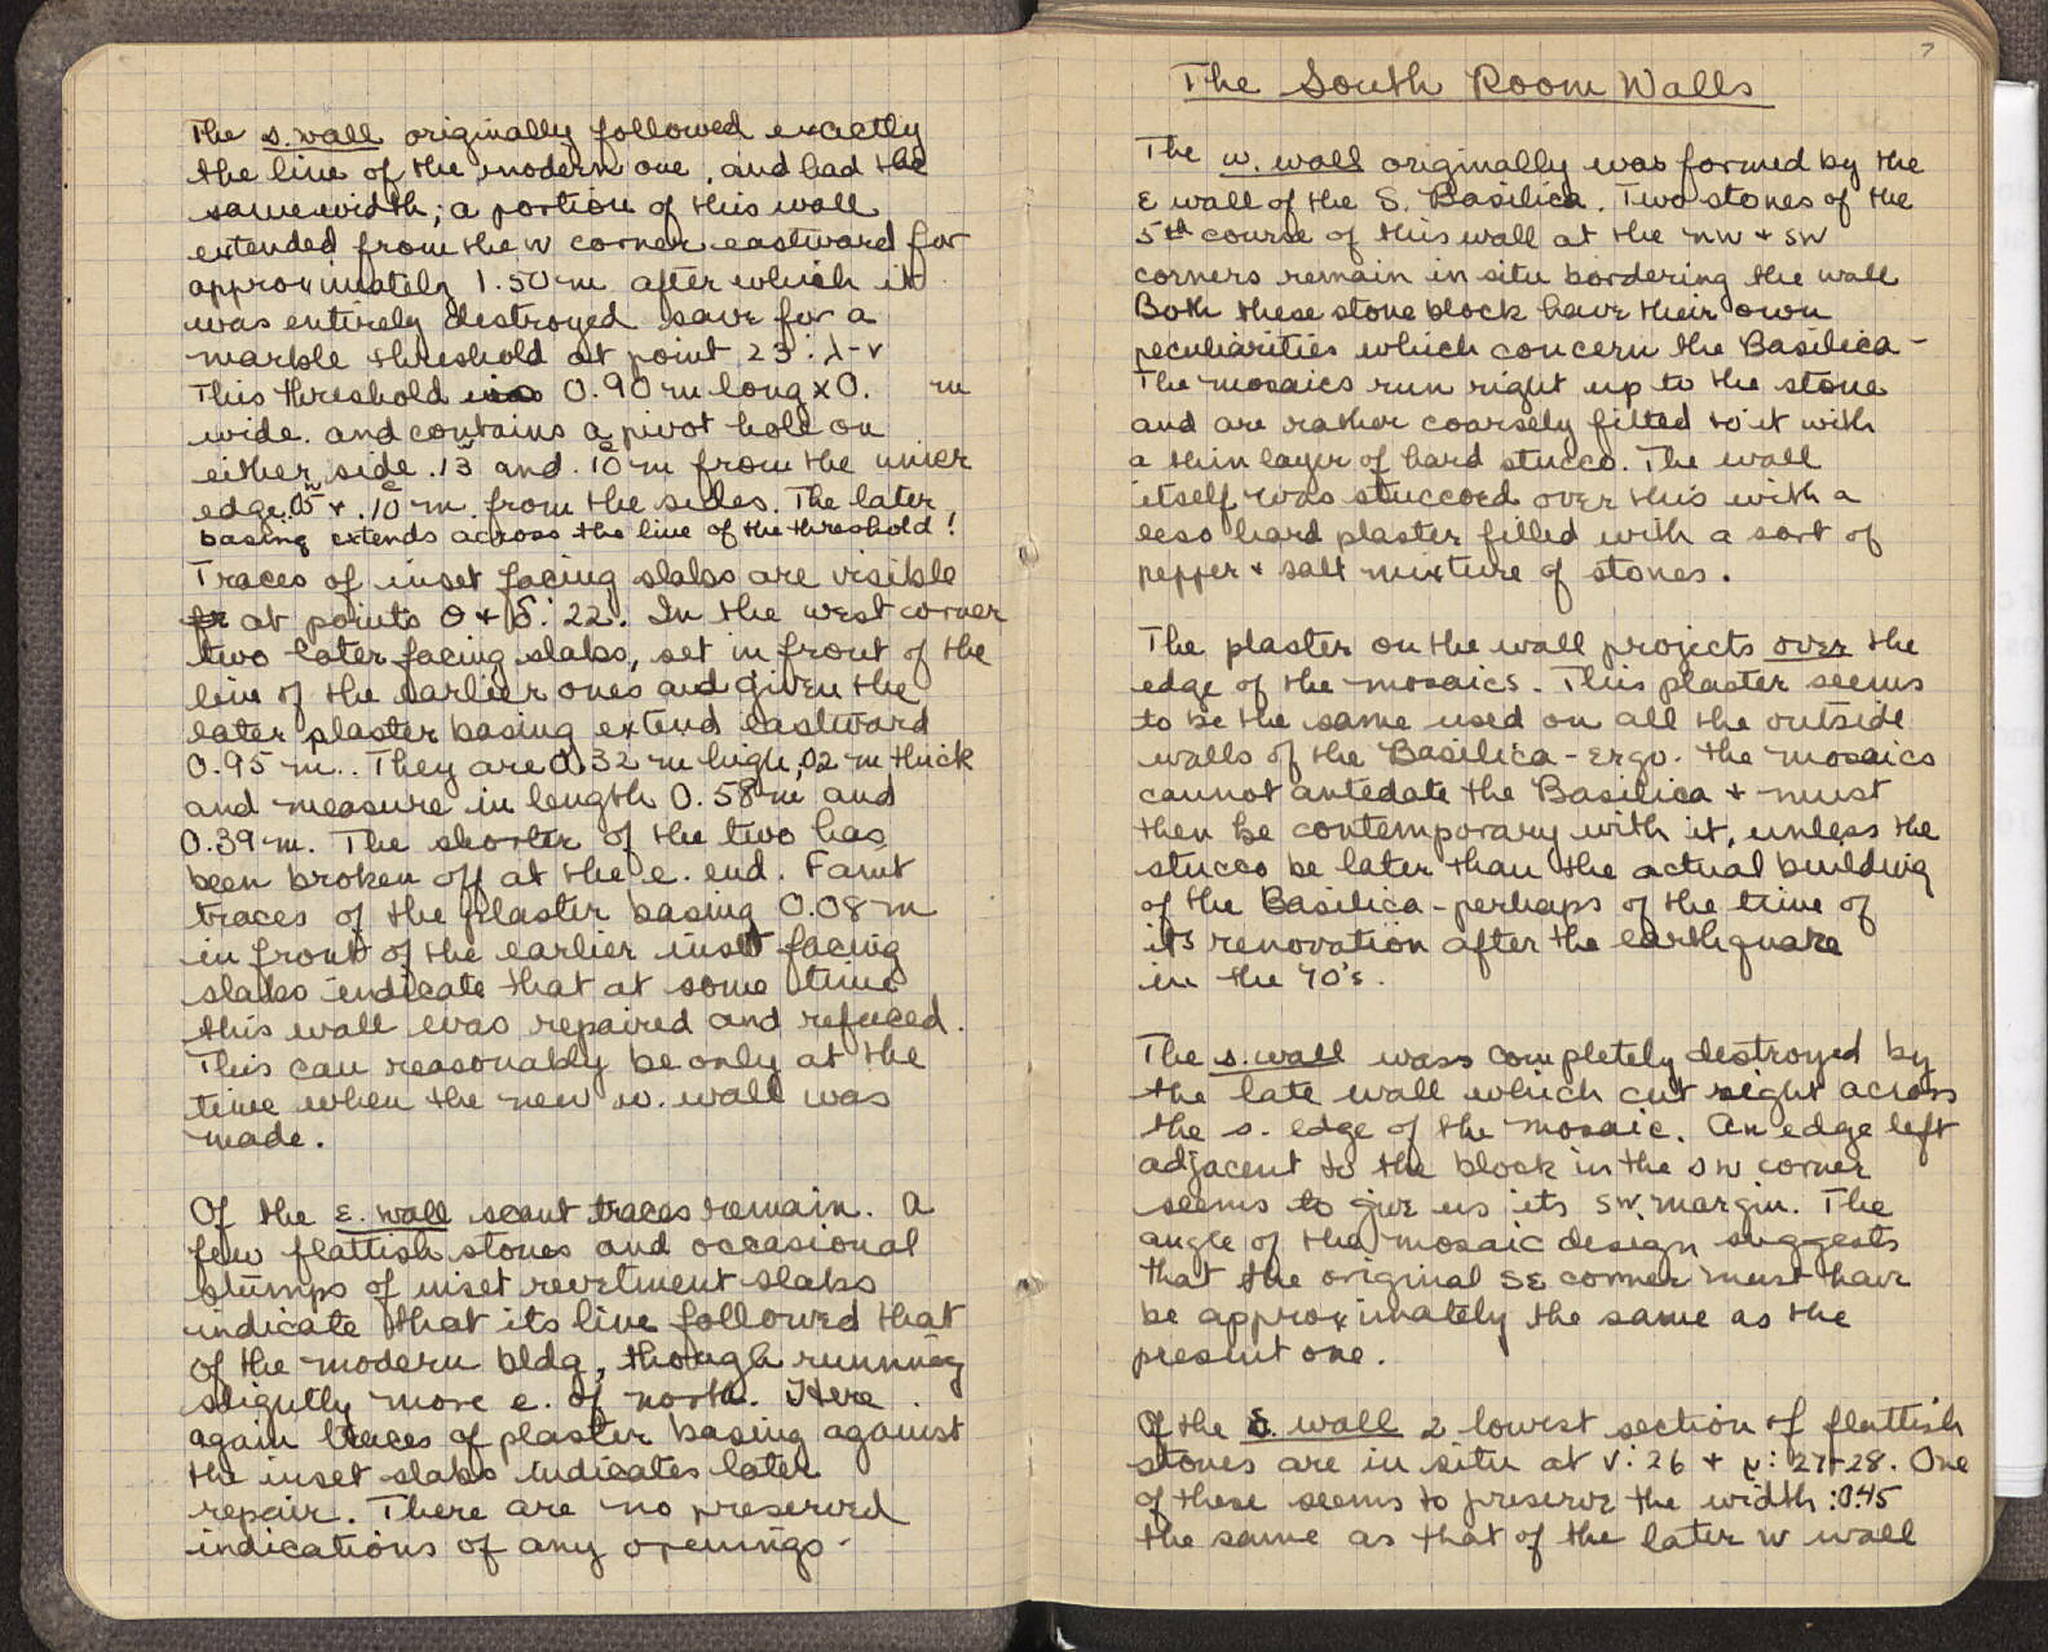 The s. wall originally followed exactly
the line of the modern one, and had the
same width; a portion of this wall
extended from the W corner eastward for
approximately 1.50 m after which it
was entirely destroyed save for a
marble threshold at point 23: λ-ν
This threshold is 0.90 m long x 0.    m
wide. and contains a pivot hole on
either side .13 and .10 m from the inner
edge .05 + .10 m from the sides. The later
basing extends across the line of the threshold!
Traces of inset facing slabs are visible
at points Θ + δ: 22. In the west corner
two later facing slabs, set in front of the
line of the earlier ones and given the
later plaster basing extend eastward
0.95 m.. They are 0.32 m high, .02 m thick
and measure in length 0.58 m and
0.39 m. The shorter of the two has
been broken off at the e. end. Faint
traces of the plaster basing 0.08 m
in front of the earlier inset facing
slabs indicate that at some time
this wall was repaired and refaced.
This can reasonably be only at the
time when the new w. wall was
made.
Of the E. wall scant traces remain. A
few flattish stones and occasional
stumps of inset revetment slabs
indicate that its line followed that
of the modern bldg, though running
slightly more e. of north. Here
again traces of plaster basing against
the inset slabs indicates later
repair. There are no preserved
indications of any openings.
7
The South Room Walls
The w. wall originally was formed by the
E wall of the S. Basilica. Two stones of the
5th course of this wall at the NW + SW
corners remain in situ bordering the wall
Both these stone block have their own
peculiarities which concern the Basilica -
The mosaics run right up to the stone
and are rather coarsely fitted to it with
a thin layer of hard stucco. The wall
itself was stuccoed over this with a
less hard plaster filled with a sort of
pepper + salt mixture of stones.
The plaster on the wall projects over the
edge of the mosaics. This plaster seems
to be the same used on all the outside
walls of the Basilica - ergo. the mosaics
cannot antedate the Basilica + must
then be contemporary with it, unless the
stucco be later than the actual building
of the Basilica - perhaps of the time of
its renovation after the earthquake
in the 70's.
The s. wall wass completely destroyed by
the late wall which cut right across
the s. edge of the mosaic. An edge left
adjacent to the block in the SW corner
seems to give us its SW margin. The
angle of the mosaic design suggests
that the original SE corner must have
be approximately the same as the
present one.
Of the wall 2 lowest section of flattish
stones are in situ at ν: 26 + μ: 27-28. One
of these seems to preserve the width: 0.45
the same as that of the later W wall